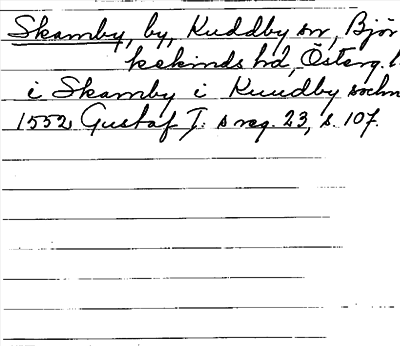 Skamby, by, Kuddby sn, Björ
kekinds hd, Österg. l.
i Skamby i Kuudby sochn
1552 Gustaf I:s reg. 23, s. 107.